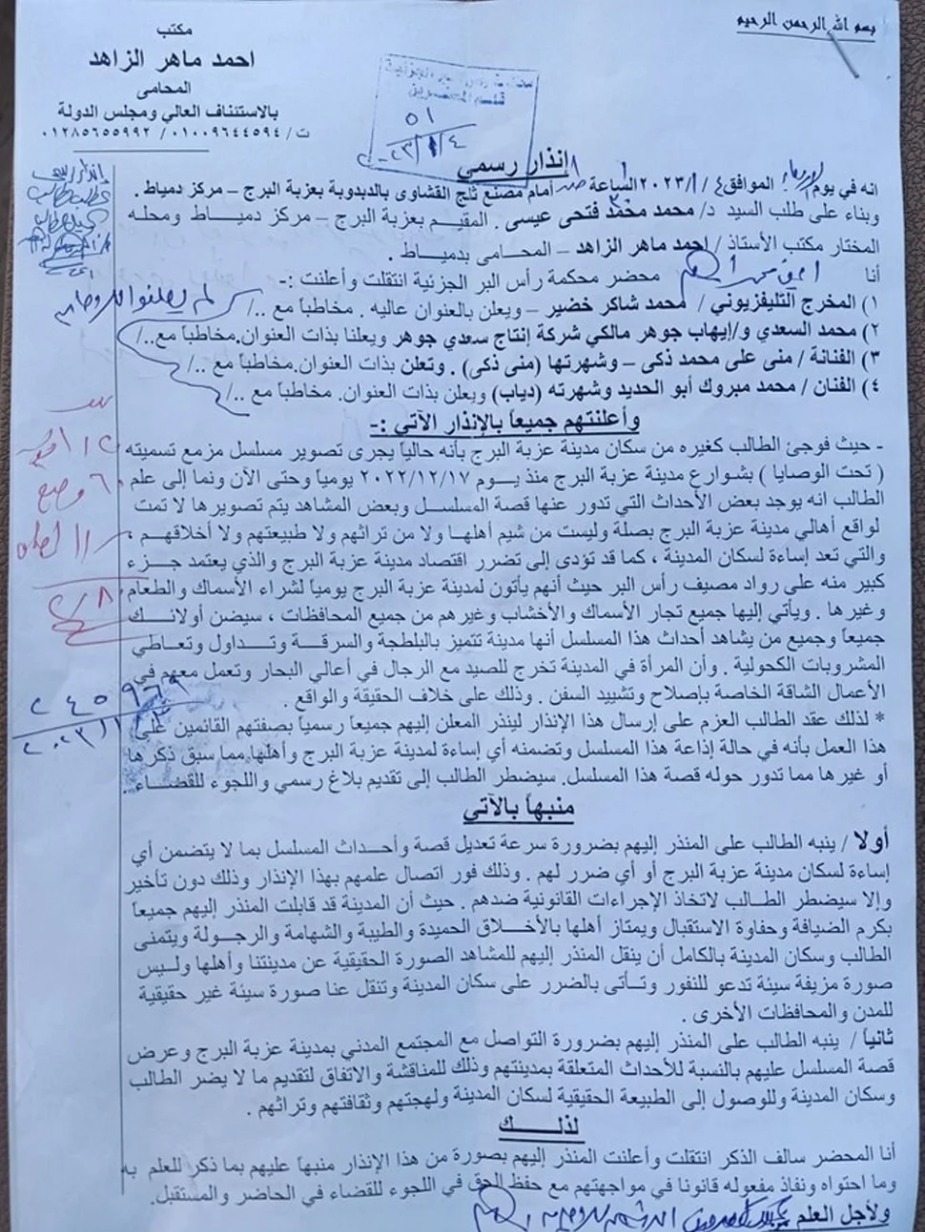 بسم الله الرحمن الرحيم
مكتب
احمد ماهر الزاهد
المحامى
بالاستئناف العالي ومجلس الدولة
ت/ ٠١٠٠٩٦٤٤٥٩٤ / ٠١٢٨٥٦٥٥٩٩٢
٥١
٢٠٢٣/١/٤
إنذار رسمي
انه في يوم الموافق ٤ / ١ /٢٠٢٣ الساعة أمام مصنع ثلج القشاوى بالدبدوبة بعزبة البرج – مركز دمياط.
وبناء على طلب السيد د/ محمد محمد فتحى عيسى . المقيم بعزبة البرج – مركز دمياط ومحله
المختار مكتب الأستاذ / احمد ماهر الزاهد – المحامى بدمياط .
أنا محضر محكمة رأس البر الجزئية انتقلت وأعلنت :-
١) المخرج التليفزيوني / محمد شاكر خضير – ويعلن بالعنوان عاليه . مخاطباً مع ../
٢) محمد السعدي و/إيهاب جوهر مالكي شركة إنتاج سعدي جوهر ويعلنا بذات العنوان.مخاطباً مع../
٣) الفنانة / منى على محمد ذكى – وشهرتها (منى ذكى) . وتعلن بذات العنوان.مخاطباً مع ../
٤) الفنان / محمد مبروك أبو الحديد وشهرته (دياب) ويعلن بذات العنوان. مخاطباً مع ../
وأعلنتهم جميعاً بالإنذار الآتي :-
- حيث فوجئ الطالب كغيره من سكان مدينة عزبة البرج بأنه حالياً يجرى تصوير مسلسل مزمع تسميته
( تحت الوصايا ) بشوارع مدينة عزبة البرج منذ يوم ٢٠٢٢/١٢/١٧ يومياً وحتى الآن ونما إلى علم
الطالب انه يوجد بعض الأحداث التي تدور عنها قصة المسلسل وبعض المشاهد يتم تصويرها لا تمت
لواقع أهالي مدينة عزبة البرج بصلة وليست من شيم أهلها ولا من تراثهم ولا طبيعتهم ولا أخلاقهم ،
والتي تعد إساءة لسكان المدينة ، كما قد تؤدى إلى تضرر اقتصاد مدينة عزبة البرج والذي يعتمد جزء
كبير منه على رواد مصيف رأس البر حيث أنهم يأتون لمدينة عزبة البرج يومياً لشراء الأسماك والطعام
وغيرها . ويأتي إليها جميع تجار الأسماك والأخشاب وغيرهم من جميع المحافظات ، سيضن أولائك
جميعاً وجميع من يشاهد أحداث هذا المسلسل أنها مدينة تتميز بالبلطجة والسرقة وتداول وتعاطي
المشروبات الكحولية . وأن المرأة في المدينة تخرج للصيد مع الرجال في أعالي البحار وتعمل معهم في
الأعمال الشاقة الخاصة بإصلاح وتشييد السفن . وذلك على خلاف الحقيقة والواقع .
* لذلك عقد الطالب العزم على إرسال هذا الإنذار لينذر المعلن إليهم جميعاً رسمياً بصفتهم القائمين على
هذا العمل بأنه في حالة إذاعة هذا المسلسل وتضمنه أي إساءة لمدينة عزبة البرج وأهلها.مما سبق ذكرها
أو غيرها مما تدور حوله قصة هذا المسلسل. سيضطر الطالب إلى تقديم بلاغ رسمي واللجوء للقضاء .
منبهاً بالآتي
أولا / ينبه الطالب على المنذر إليهم بضرورة سرعة تعديل قصة وأحداث المسلسل بما لا يتضمن أي
إساءة لسكان مدينة عزبة البرج أو أي ضرر لهم . وذلك فور اتصال علمهم بهذا الإنذار وذلك دون تأخير
وإلا سيضطر الطالب لاتخاذ الإجراءات القانونية ضدهم . حيث أن المدينة قد قابلت المنذر إليهم جميعاً
بكرم الضيافة وحفاوة الاستقبال ويمتاز أهلها بالأخلاق الحميدة والطيبة والشهامة والرجولة ويتمنى
الطالب وسكان المدينة بالكامل أن ينقل المنذر إليهم للمشاهد الصورة الحقيقية عن مدينتنا وأهلها وليس
صورة مزيفة سيئة تدعو للنفور وتأتى بالضرر على سكان المدينة وتنقل عنا صورة سيئة غير حقيقية
للمدن والمحافظات الأخرى .
ثانياً / ينبه الطالب على المنذر إليهم بضرورة التواصل مع المجتمع المدني بمدينة عزبة البرج وعرض
قصة المسلسل عليهم بالنسبة للأحداث المتعلقة بمدينتهم وذلك للمناقشة والاتفاق لتقديم ما لا يضر الطالب
وسكان المدينة وللوصول إلى الطبيعة الحقيقية لسكان المدينة ولهجتهم وثقافتهم وتراثهم .
لذلك
أنا المحضر سالف الذكر انتقلت وأعلنت المنذر إليهم بصورة من هذا الإنذار منبهاً عليهم بما ذكر للعلم به
وما احتواه ونفاذ مفعوله قانونا في مواجهتهم مع حفظ الحق في اللجوء للقضاء في الحاضر والمستقبل.
ولأجل العلم